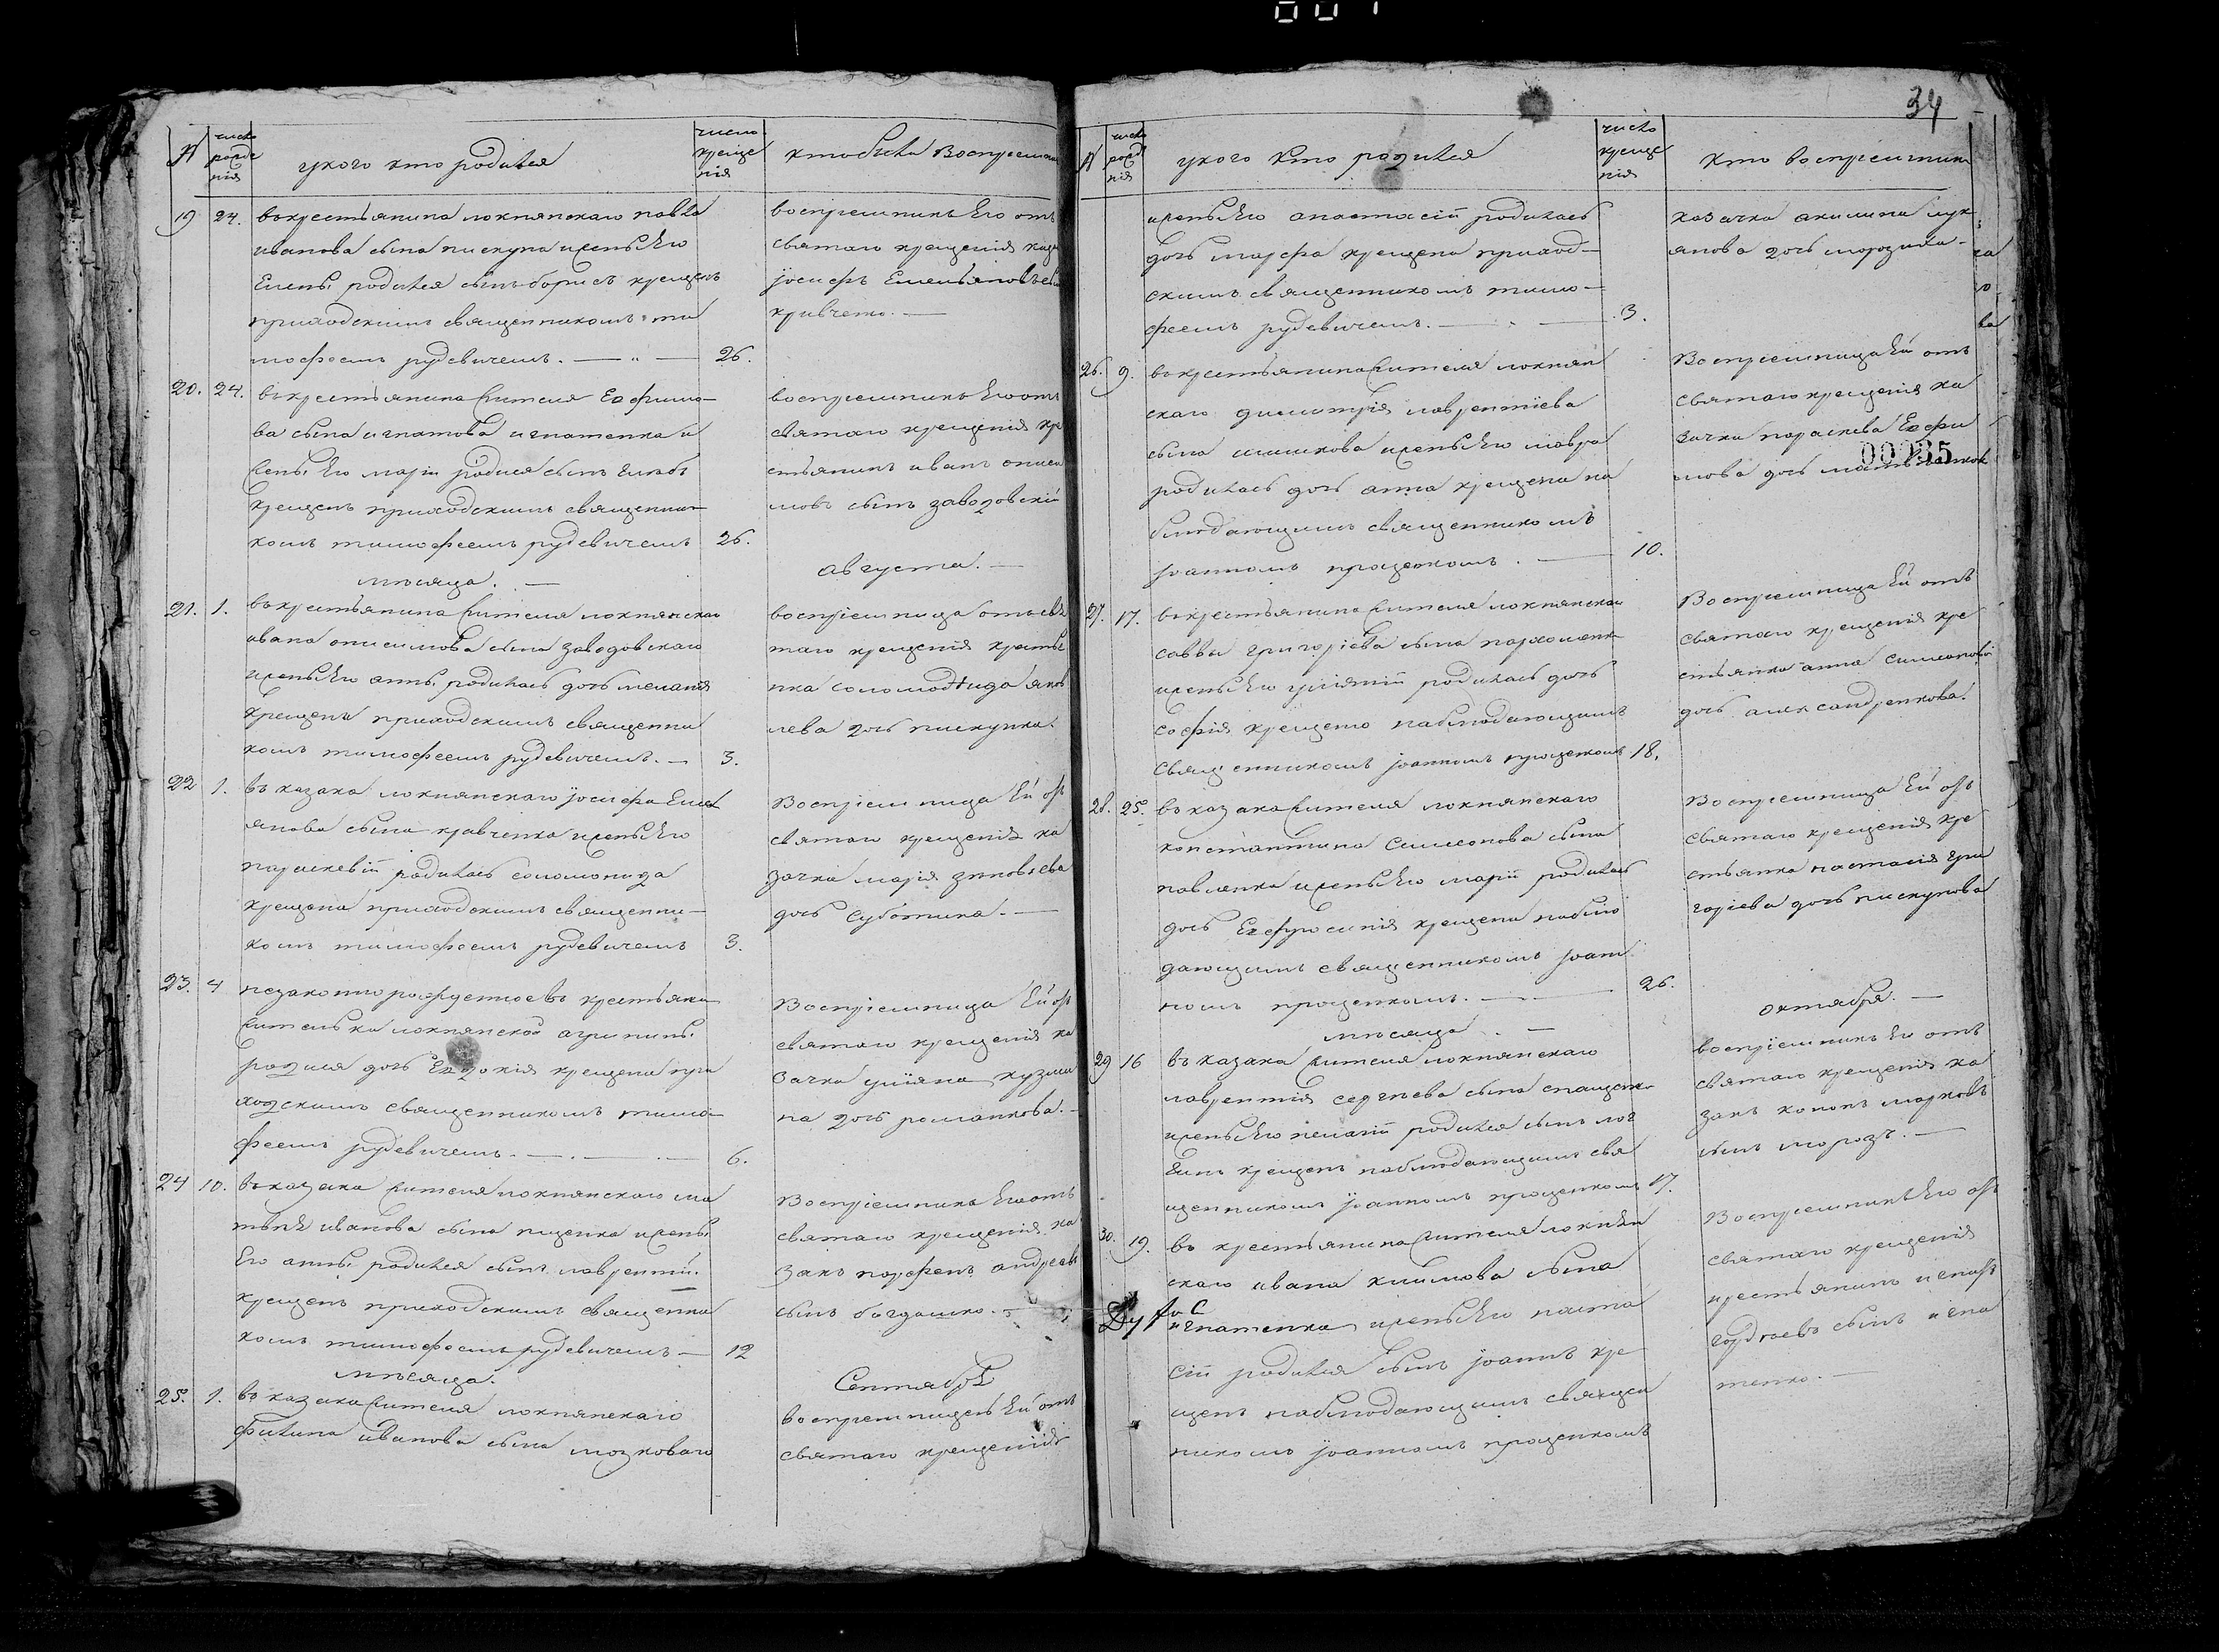 34
№
число рожде нія
у кого кто родился
число креще нія
кто былъ воспріемник
19 24. въ крестьянина локнянскаго павла
иванова сына пискуна и жены его
Елены родился сынъ борисъ крещенъ
приходскимъ священникомъ ти
мофеемъ рудевичемъ. — 26.
воспріемникъ Его отъ
святаго крещенія каза
іосифъ Емельяновъ сы
кравченко. —
20. 24. въ крестьянина жителя Евфимо-
ва сына игнатова игнатенка и
жены Его маріи родился сынъ глебъ
крещенъ приходскимъ священни-
комъ тимофеемъ рудевичемъ 26.
воспріемникъ Его отъ
святаго крещенія кре
стьянинъ иванъ ониси
мовъ сынъ заводовскій
мѣсяца. — августа. —
21. 1. въ крестьянина жителя локнянскаго
ивана онисимова сына заводовскаго
и жены Его анны родилась дочь меланія
крещена приходскимъ священни
комъ тимофеемъ рудевичемъ. — 3.
воспріемница отъ свя
таго крещенія крестья
нка соломонида яков
лева дочь пискунка.
22 1. въ казака локнянскаго іосифа Емел
янова сына кравченка и жены Его
параскевіи родилась соломонида
крещена приходскимъ священни-
комъ тимофеемъ рудевичемъ 3.
Воспріемница Ей отъ
святаго крещенія ка
зачка марія зиновіева
дочь суботина. —
23. 4 незаконно рожденное въ крестьянки
жителки локнянской агрипины
родися дочь Евдокія крещена при
ходскимъ священникомъ тимо-
феемъ рудевичемъ. — 6.
Воспріемница Ей отъ
святаго крещенія ка
зачка уліяна кузми
на дочь романкова. —
24 10. въ казака жителя локнянскаго ма
твѣя иванова сына ищенка и жены
Его анны родился сынъ лаврентій.
крещенъ приходскимъ священни
комъ тимофеемъ рудевичемъ — 12
Воспріемникъ Его отъ
святаго крещенія ка
закъ парфенъ андреевъ
сынъ богдашко. —
мѣсяца. Сентября
25. 1. въ казака жителя локнянскаго
филипа Иванова сына мозковаго
воспріемницею Ей отъ
святаго крещенія
№
число рожд нія
у кого кто родился
число креще нія
кто воспріемник
и жены Его анастасіи родилась
дочь марфа крещена приход-
скимъ священникомъ тимо-
феемъ рудевичемъ. — 3.
казачка акилина лук
янова дочь морозиха. —
26. 9. въ крестьянина жителя локнян
скаго димитрія лаврентіева
сына машкова и жены Его мавра
родилась дочь анна крещена на
блюдающимъ священникомъ
іоанномъ проценкомъ. — 10.
Воспріемница Ей отъ
святаго крещенія ка
зачка параскева Евфи
мова дочь
00035
27. 17. въ крестьянина жителя локнянскаго
саввы григоріева сына пархоменк
и жены Его уліяніи родилась дочь
софія крещено наблюдающимъ
священникомъ іоанномъ проценкомъ 18.
Воспріемница Ей отъ
святаго крещенія кре
стьянка анна симеонова
дочь александренкова.
28. 25. въ казака жителя локнянскаго
константина Симеонова сына
павленка и жены Его маріи родилась
дочь Евфросинія крещена наблю
дающимъ священникомъ іоан
номъ проценкомъ. — 26.
Воспріемница Ей отъ
святаго крещенія кре
стьянка настасія гри
горіева дочь пискунова
мѣсяца. — октября. —
29 16 въ казака жителя локнянскаго
лаврентія сергѣева сына спащенк
и жены Его пелагіи родился сынъ лог
винъ крещенъ наблюдающимъ свя
щенникомъ іоанномъ проценкомъ 17.
воспріемникъ Его отъ
святаго крещенія ка
закъ кононъ марковъ
сынъ морозъ. —
30. 19. въ крестьянина жителя локнян
скаго ивана климова сына
игнатенка и жены Его наста
сіи родился сынъ іоаннъ кре
щенъ наблюдающимъ священ
никомъ іоанномъ проценкомъ
Воспріемникъ Его отъ
святаго крещенія
крестьянинъ игнатъ
гордѣевъ сынъ игна
тенко. —